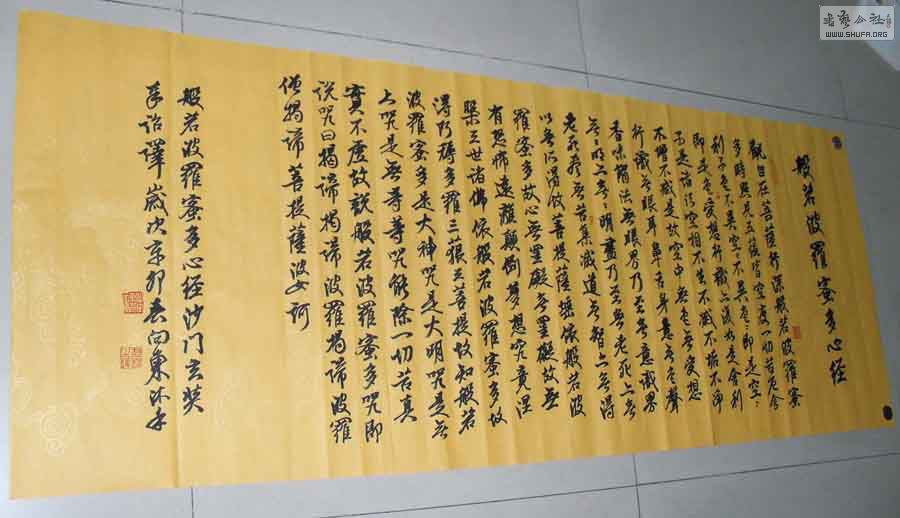 般若波羅蜜多心經
觀自在菩薩行深般若波羅蜜
多時照見五蘊皆空度一切苦厄舍
利子色不異空〻不異色〻即是空〻
即是色受想行識亦復如是舍利
子是諸法空相不生不滅不垢不淨
不增不減是故空中無色無受想
行識無眼耳鼻舌身意無色聲
香味觸法無眼界乃至無意識界
無〻明亦無〻明盡乃至無老死亦無
老死盡無苦集滅道無智亦無得
以無所得故菩提薩埵依般若波
羅蜜多故心無罣礙無罣礙故無
有恐怖遠離顛倒夢想究竟涅
槃三世諸佛依般若波羅蜜多故
得阿耨多羅三藐三菩提故知般若
波羅蜜多是大神咒是大明咒是無
上咒是無等等咒能除一切苦真
實不虛故說般若波羅蜜多咒即
說咒曰揭諦揭諦波羅揭諦波羅
僧揭諦菩提薩婆訶
般若波羅蜜多心經沙門玄奘
奉詔譯歲次辛卯春向東沐手
書藝公社
WWW.SHUFA.ORG